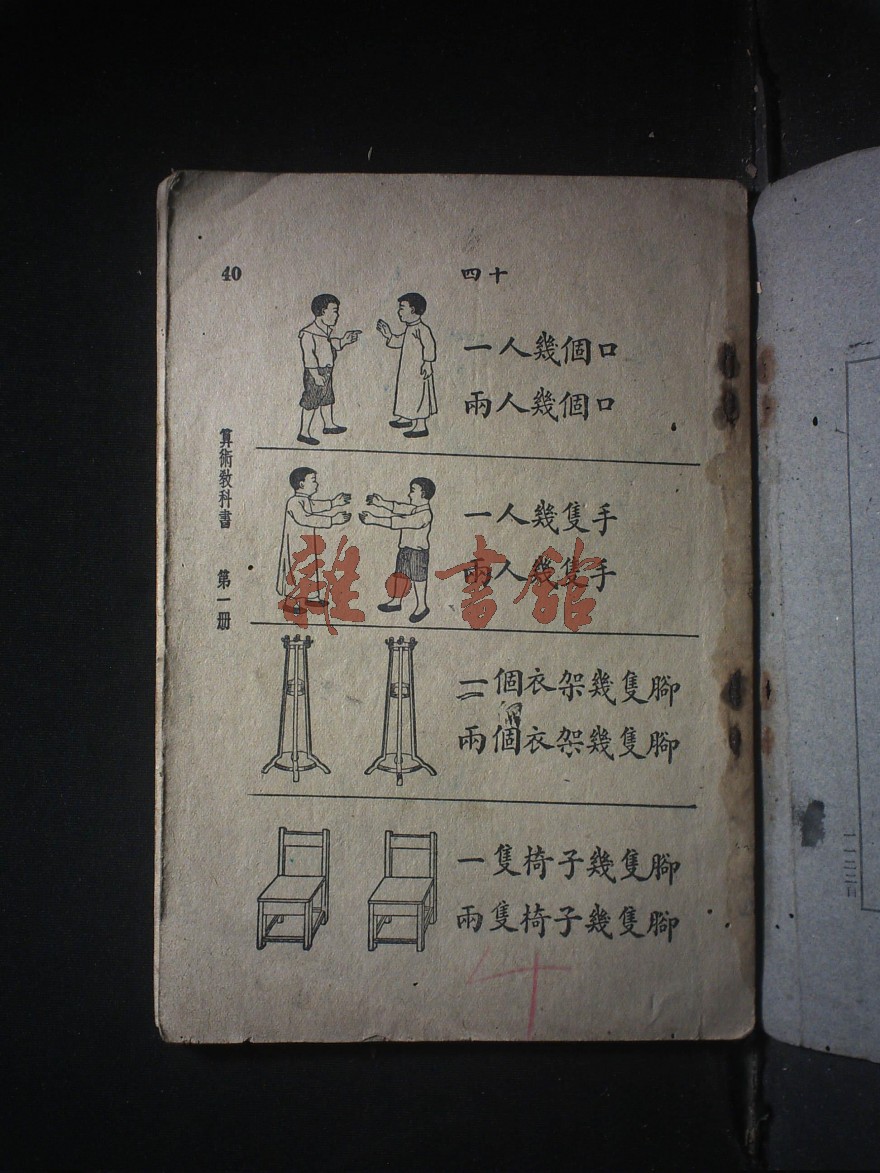 40
四十
一人幾個口
兩人幾個口
算術教科書 第一册
一人幾隻手
兩人幾隻手
雜·書館
一個衣架幾隻腳
兩個衣架幾隻腳
一隻椅子幾隻腳
兩隻椅子幾隻腳